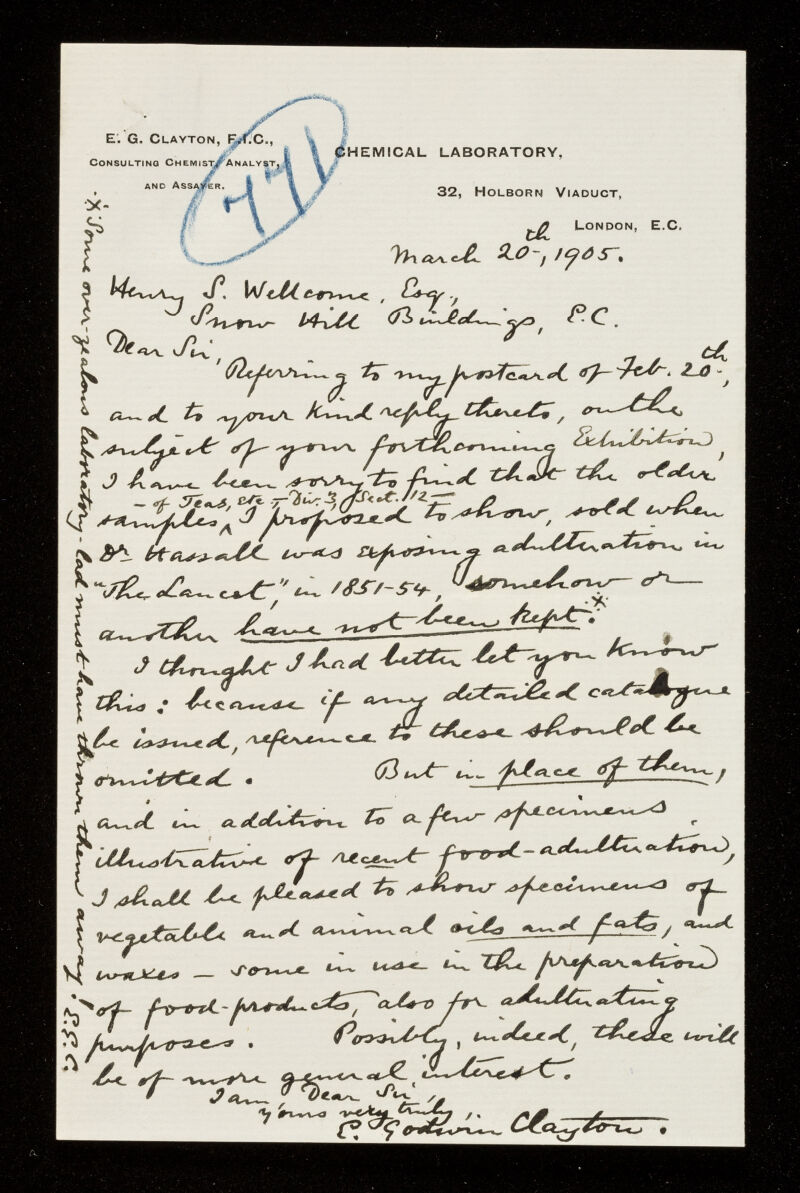 E. G. CLAYTON, F.I.C.,
CONSULTING CHEMIST, ANALYST,
AND ASSAYER.
771
CHEMICAL LABORATORY,
32, HOLBORN VIADUCT,
LONDON, E.C.
March 20th, 1905.
Henry S. Wellcome, Esq.,
Snow Hill Buildings, E.C.
Dear Sir,
Referring to my postcard of Feb. 20th,
and to your kind reply thereto, on the
subject of your forthcoming Exhibition,
I have been sorry to find that the older
– of Teas, etc – Div. 3, Sect. 12 –
samples, ^ I proposed to show, sold when
Dr Hassall was exposing adulteration in
"The Lancet," in 1851-54, somehow or
another have not been kept. x
I thought I had better let you know
this: because if any detailed catalogue
be issued, reference to these should be
omitted. But in place of them,
and in addition to a few specimens
illustrative of recent food-adulteration,
I shall be pleased to show specimens of
vegetable and animal oils and fats, and
waxes – some in use in the preparation
of food-products, also for adulterating
purposes. Possibly, indeed, these will
be of more general interest.
I am, Dear Sir,
yours very truly,
E. Godwin Clayton.
x Some over-zealous laboratory-lad must have thrown them away! E.G.C.